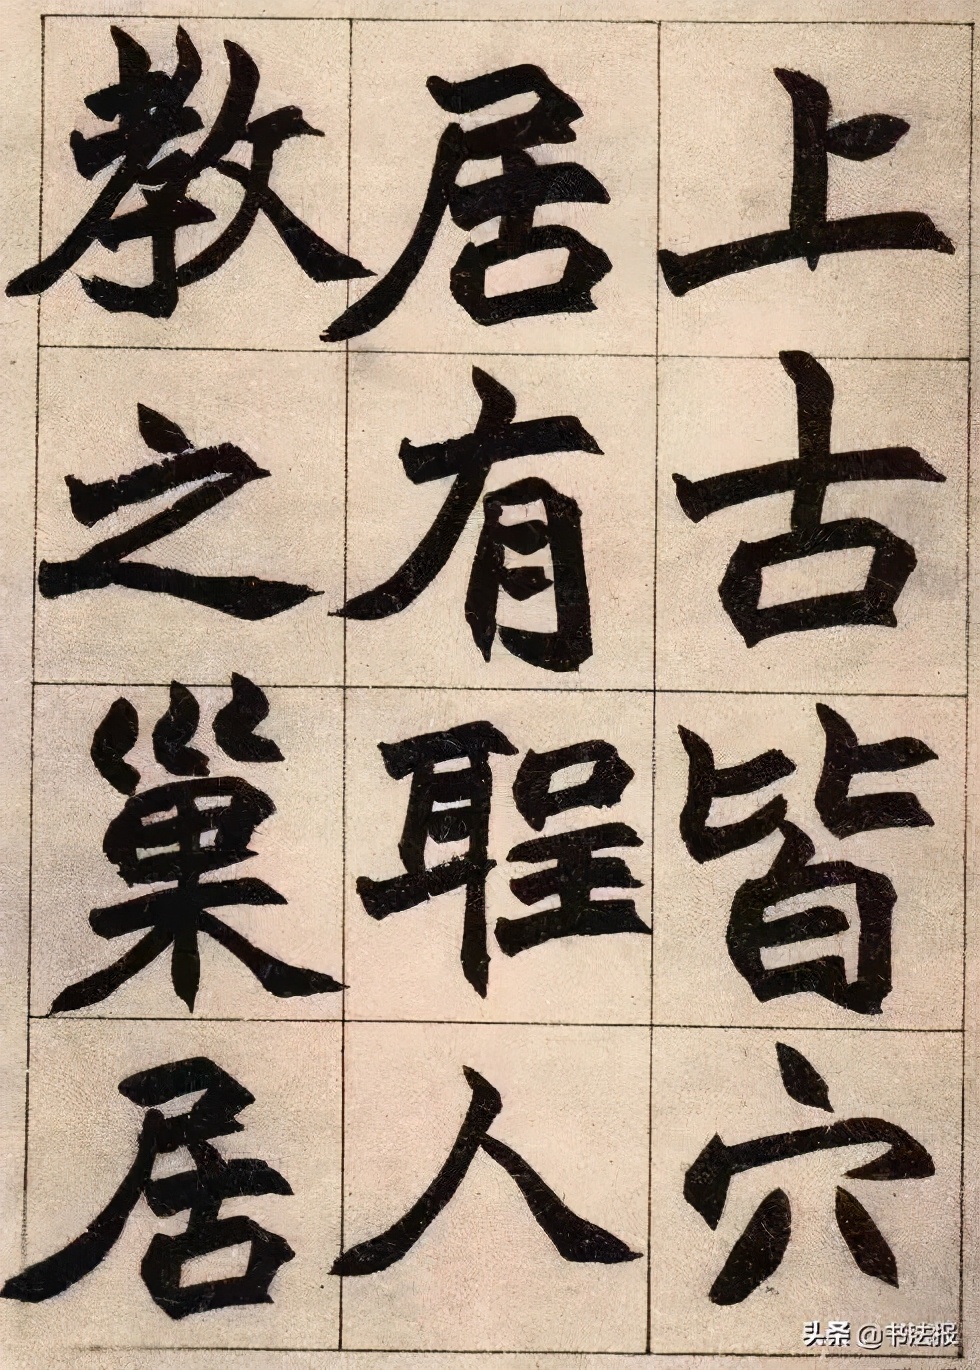 上古皆穴
居有聖人
教之巢居
头条 @书法报